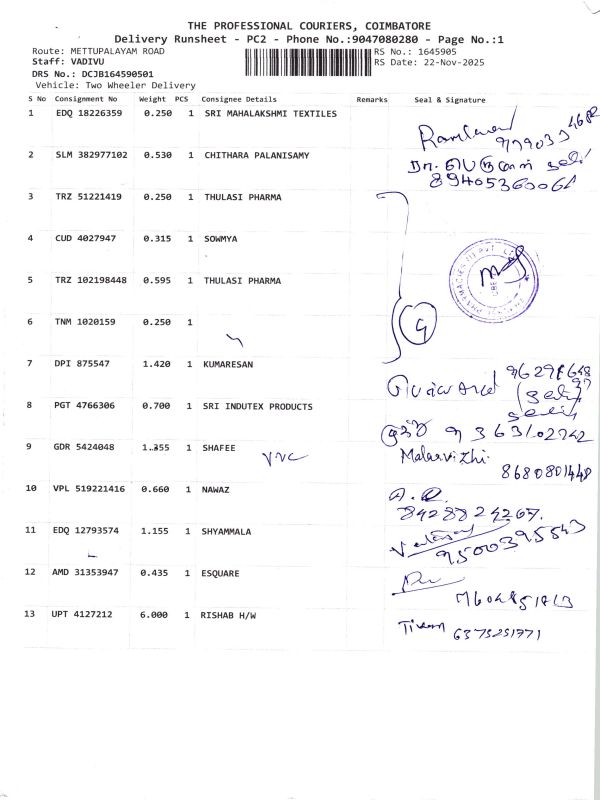 THE PROFESSIONAL COURIERS, COIMBATORE
Delivery Runsheet - PC2 - Phone No.:9047080280 - Page No.:1
Route: METTUPALAYAM ROAD
RS No.: 1645905
Staff: VADIVU
RS Date: 22-Nov-2025
DRS No.: DCJB164590501
Vehicle: Two Wheeler Delivery
S No Consignment No Weight PCS Consignee Details Remarks Seal & Signature
1 EDQ 18226359 0.250 1 SRI MAHALAKSHMI TEXTILES
2 SLM 382977102 0.530 1 CHITHARA PALANISAMY
8940536006
3 TRZ 51221419 0.250 1 THULASI PHARMA
4 CUD 4027947 0.315 1 SOWMYA
5 TRZ 102198448 0.595 1 THULASI PHARMA
6 TNM 1020159 0.250 1
7 DPI 875547 1.420 1 KUMARESAN
8 PGT 4766306 0.700 1 SRI INDUTEX PRODUCTS
9 GDR 5424048 1.355 1 SHAFEE
Malarvizhi
8680801448
10 VPL 519221416 0.660 1 NAWAZ
8428824267.
11 EDQ 12793574 1.155 1 SHYAMMALA
9500395543
12 AMD 31353947 0.435 1 ESQUARE
13 UPT 4127212 6.000 1 RISHAB H/W
6375251771